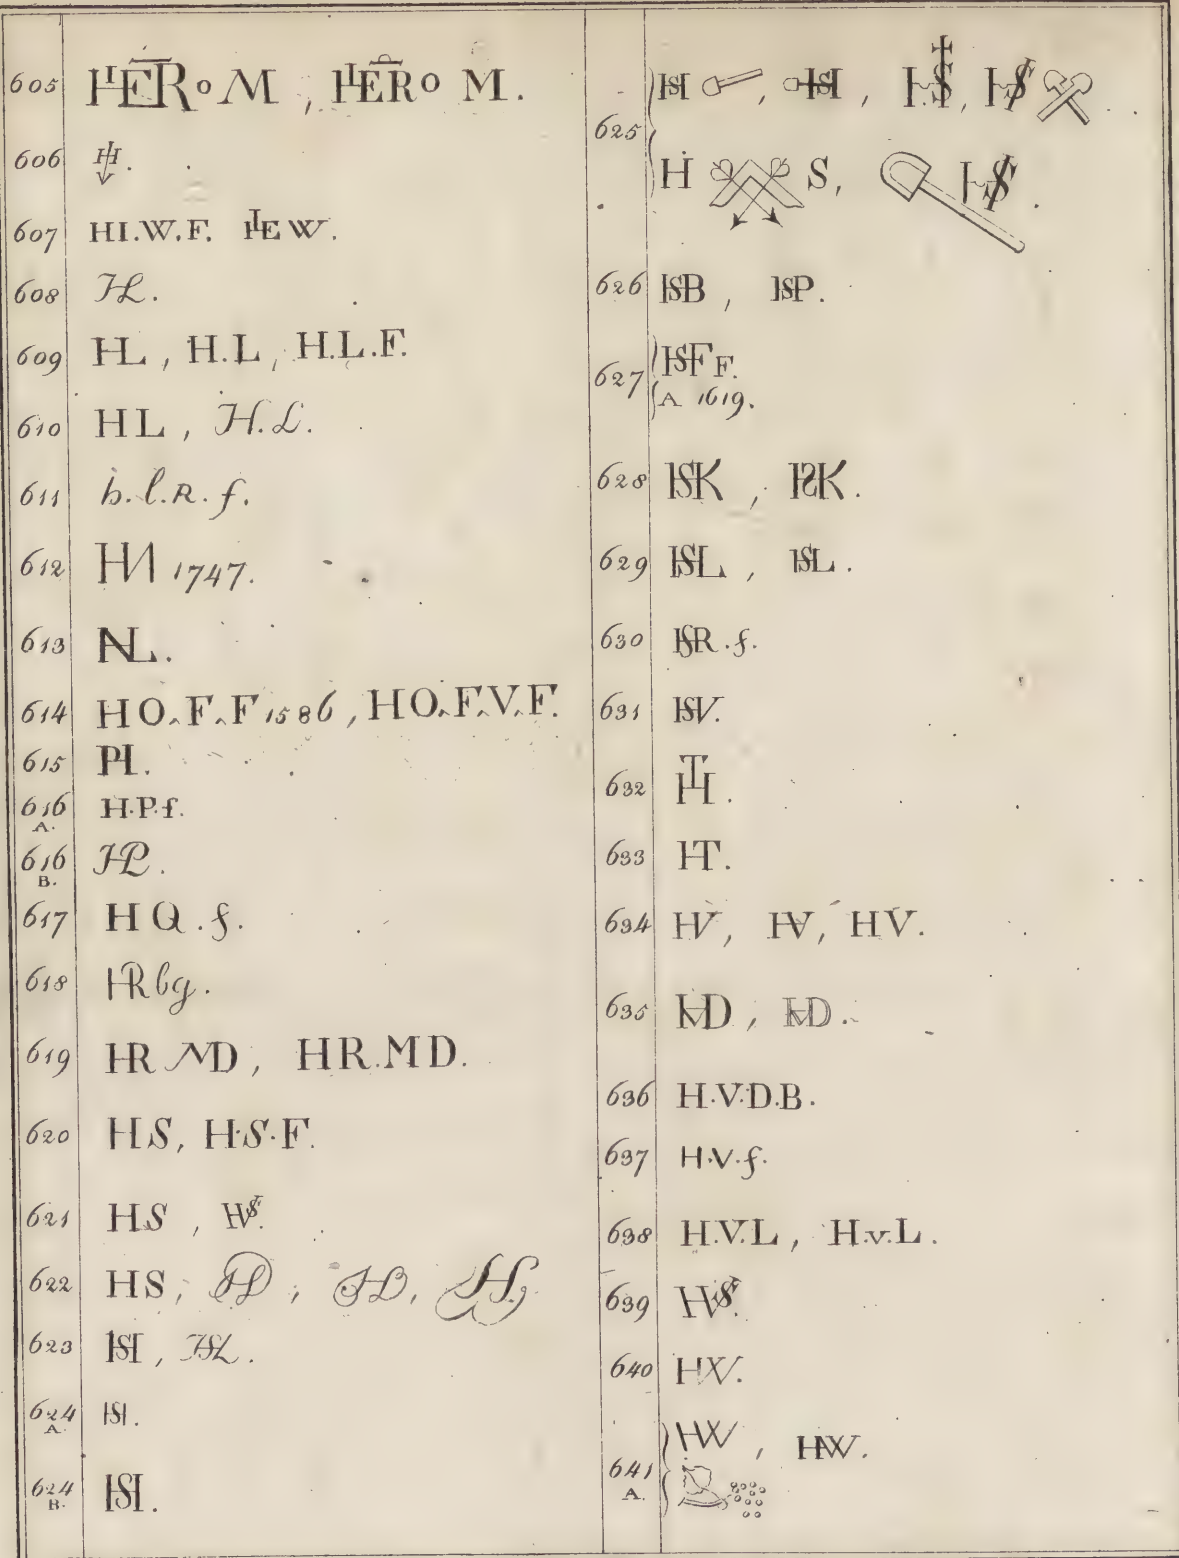 605 HERo M , HERo M.
606
607 HI.W.F. HEW.
608 HL.
609 HL , H.L , H.L.F.
610 HL , H.L.
611 h.l.R.f.
612 HN 1747.
613 NL.
614 HO.F.F 1586 , HO.F.V.F.
615 PH.
616 A. H.P.f.
616 B. HP.
617 HQ.f.
618 HRbg.
619 HR MD , HR.MD.
620 H.S, H.S.F.
621 H.S ,
622 HS ,
623 HSI ,
624 A. HS.
624 B. HS.
625 HS , HS , HS, HS
H S, HS .
626 HSB , HSP.
627 HSF F.
A 1619.
628 HSK , HSK.
629 HSL , HSL.
630 HSR.f.
631 HSV.
632 HT.
633 HT.
634 HV, HV, HV.
635 HVD , HVD.
636 H.V.D.B.
637 H.V.f.
638 H.V.L , H.v.L.
639
640 HW.
641 A. HW , HW.